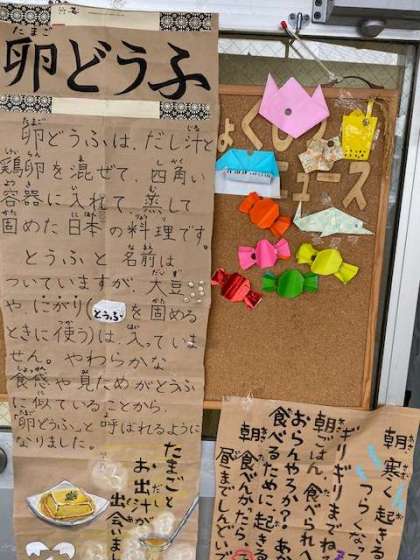 たまご
卵どうふ
卵どうふは、だし汁と
鶏卵を混ぜて、四角い
容器に入れて、蒸して
固めた日本の料理です。
とうふと名前は
ついていますが、大豆
やにがり(とうふを固める
ときに使う)は、入っていま
せん。やわらかな
食感や見ためがとうふ
に似ていることから、
「卵どうふ」と呼ばれるように
なりました。
たまごと
お出汁が
出会いま
ニュース
朝、寒く起きる
つらくな
ギリギリまでね
朝ごはん、食べられへ
おらんやろか?あ
食べるために、起きる
朝食べんかったら、
昼までしんどい